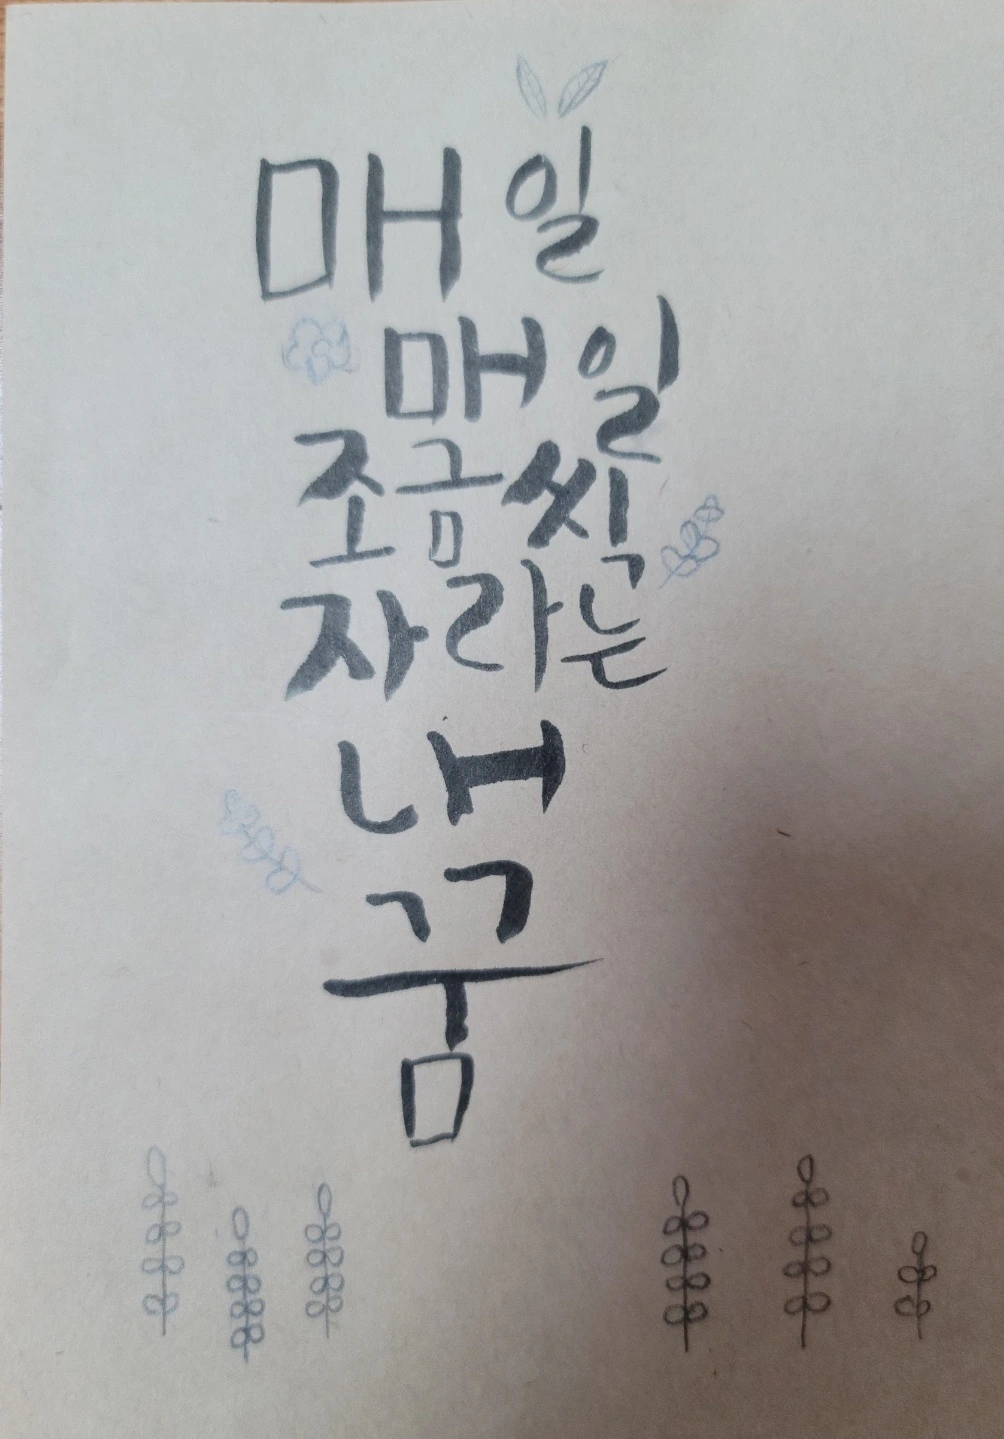 매일
매일
조금씩
자라는
내
꿈